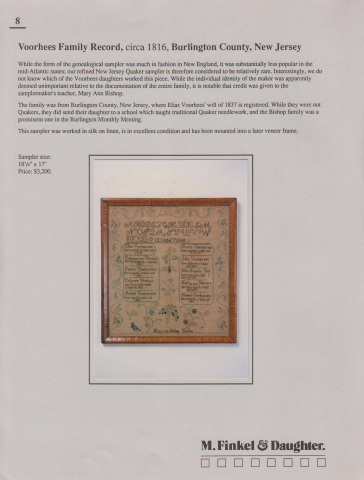 8
Voorhees Family Record, circa 1816, Burlington County, New Jersey
While the form of the genealogical sampler was much in fashion in New England, it was substantially less popular in the
mid-Atlantic states; our refined New Jersey Quaker sampler is therefore considered to be relatively rare. Interestingly, we do
not know which of the Voorhees daughters worked this piece. While the individual identity of the maker was apparently
deemed unimportant relative to the documentation of the entire family, it is notable that credit was given to the
samplermaker's teacher, Mary Ann Bishop.
The family was from Burlington County, New Jersey, where Elias Voorhees' will of 1837 is registered. While they were not
Quakers, they did send their daughter to a school which taught traditional Quaker needlework, and the Bishop family was a
prominent one in the Burlington Monthly Meeting.
This sampler was worked in silk on linen, is in excellent condition and has been mounted into a later veneer frame.
Sampler size:
18½" x 17"
Price: $3,200.
M. Finkel & Daughter.